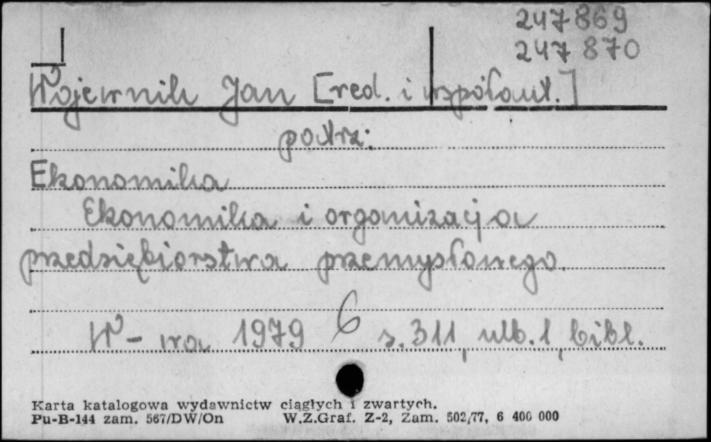 247869
247870
Wojewnik Jan [red. i współaut.]
patrz:
Ekonomika
Ekonomika i organizacja
przedsiębiorstwa przemysłowego.
W-wa 1979 6 s. 311, nlb. 1, bibl.
Karta katalogowa wydawnictw ciągłych i zwartych.
Pu-B-144 zam. 567/DW/On W.Z.Graf. Z-2, Zam. 502/77, 6 400 000